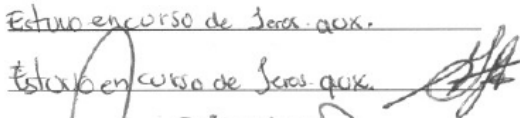 Estuvo en curso de 1eros. aux.
Estuvo en curso de 1eros. aux.